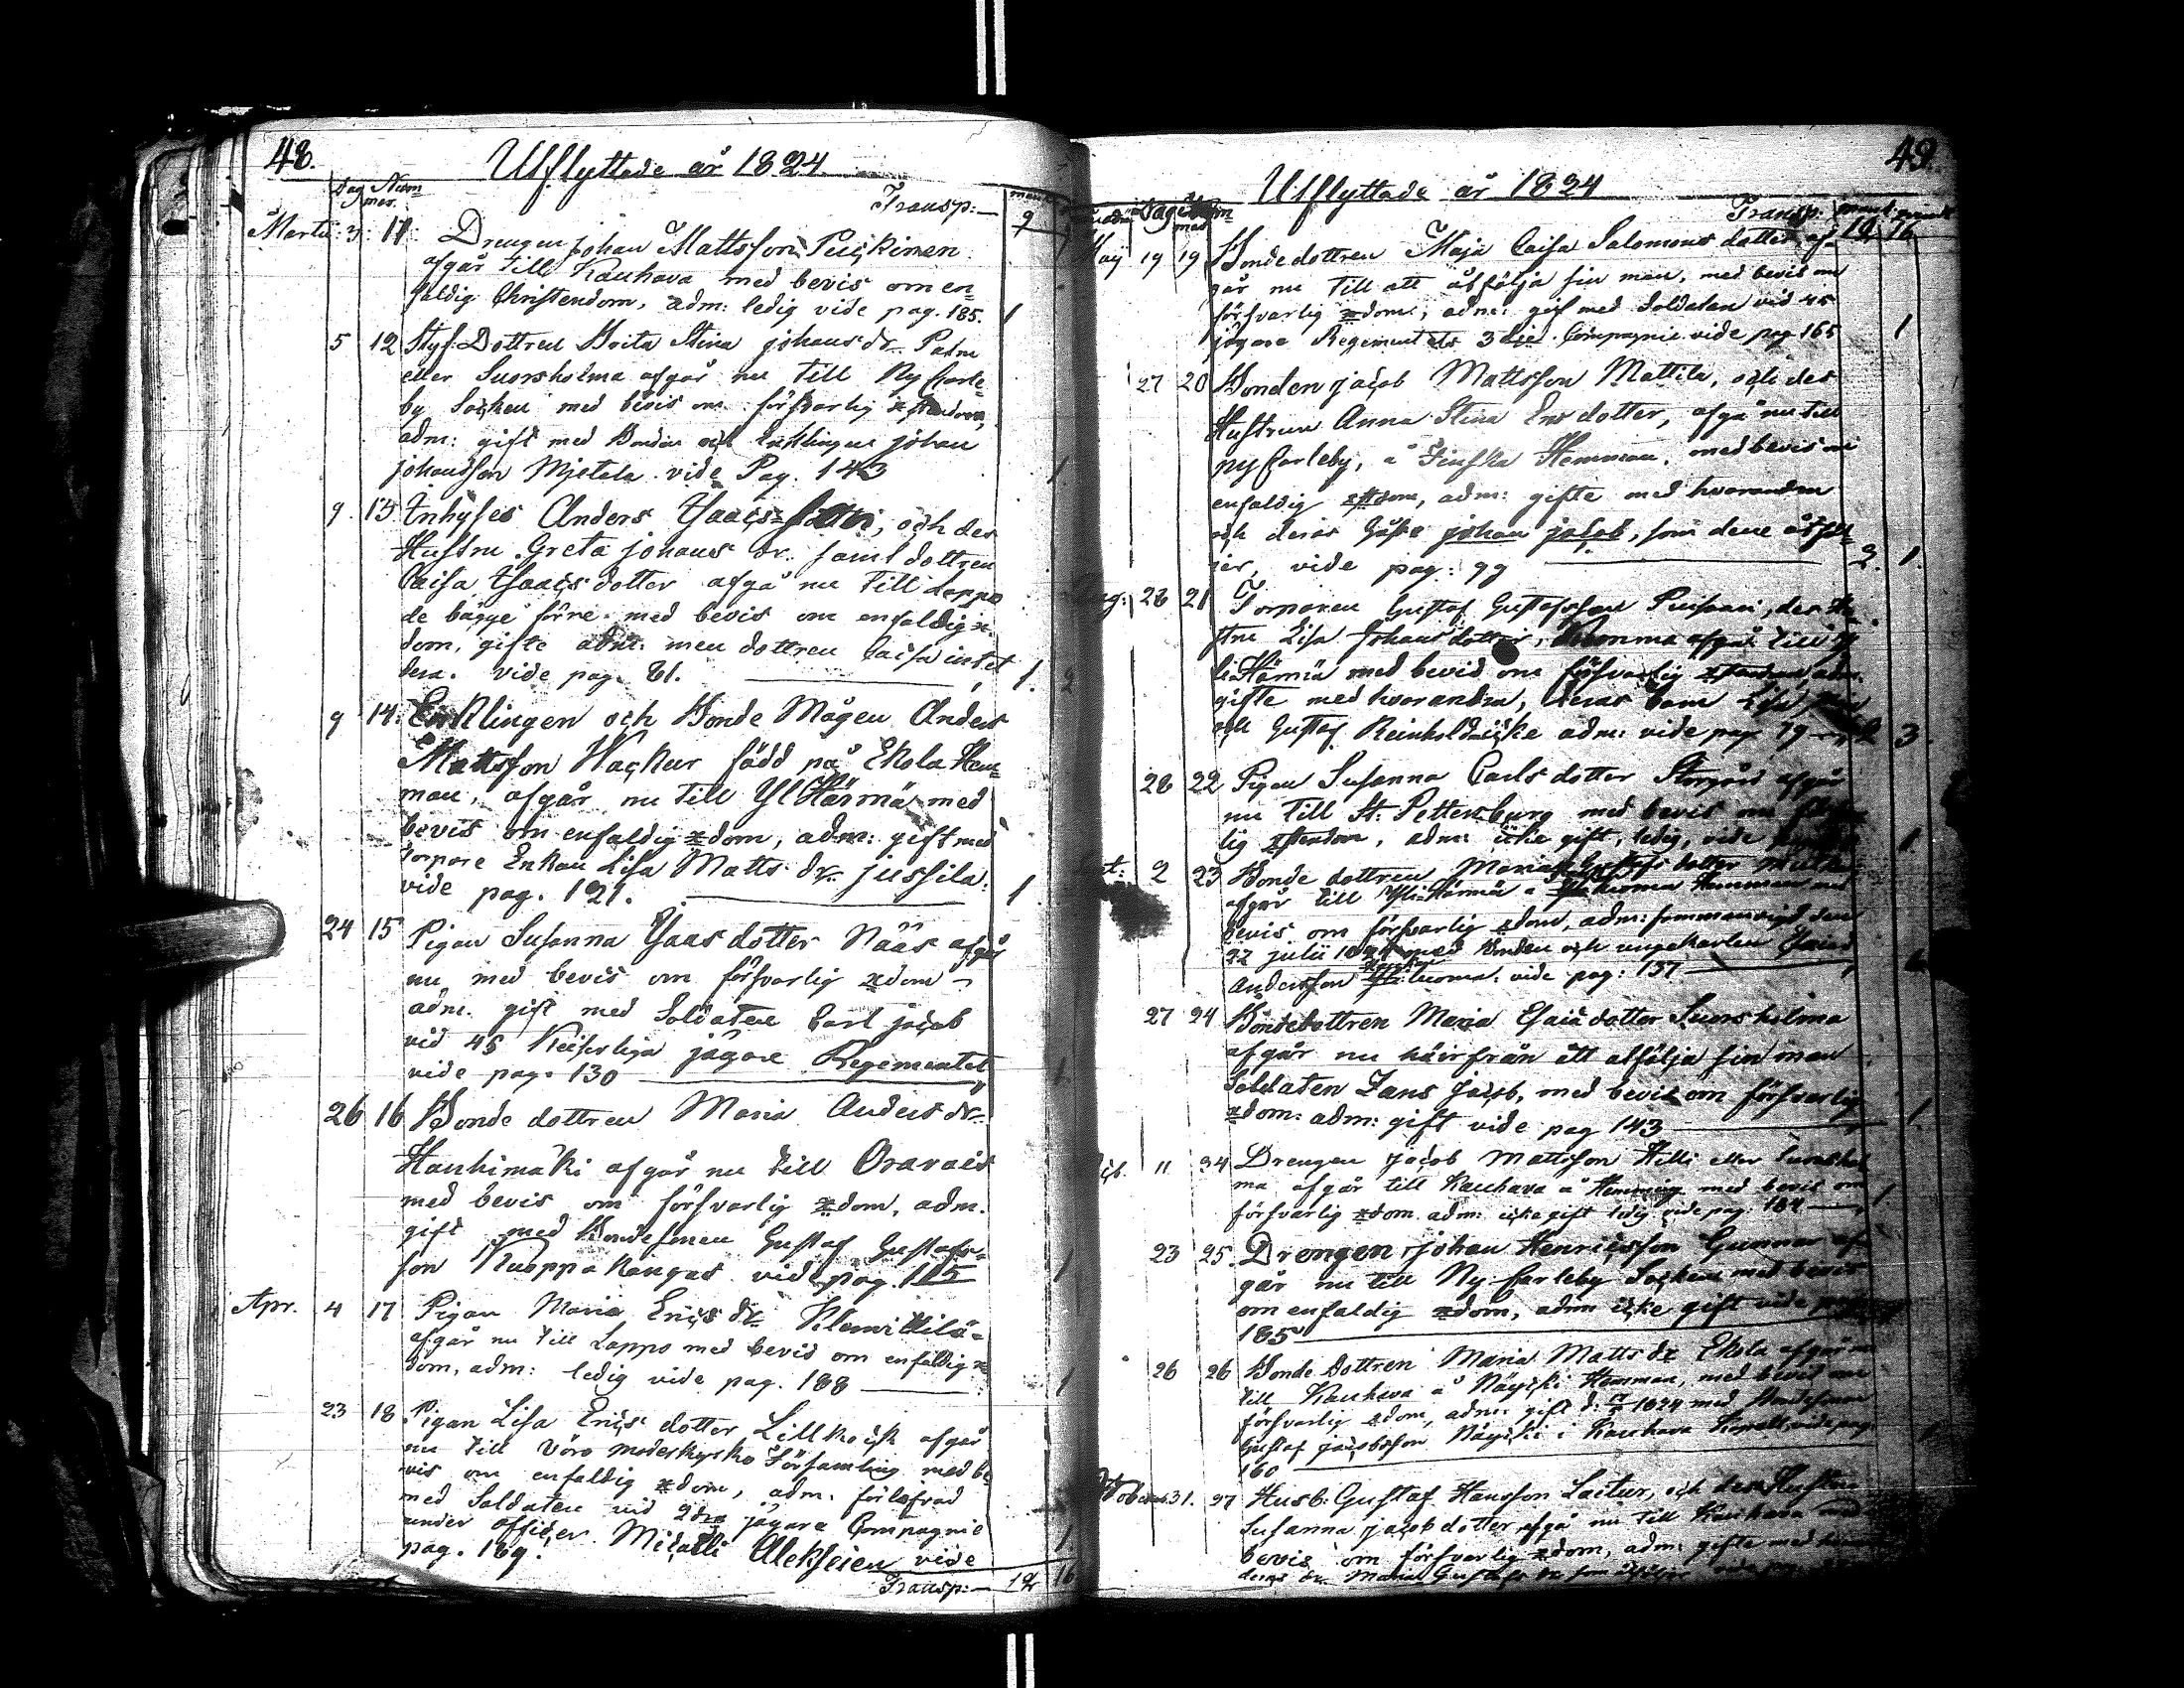 48.
Utflyttade år 1824.
Dag Num=
mer.
Transp:— 9
Martii 3. 11. Drengen Johan Mattsson Puckinen
afgår till Kauhava med bevis om en=
faldig Christendom, adm: ledig vide pag. 185. 1
5 12 Styf-Dottren Brita Stina Johans dr.
eller Suorsholma afgår nu till Ny Carle=
by Socken med bevis om försvarlig
adm: gift med Bonden och Enklingen Johan
Johansson Mjetala vide Pag. 143 1.
9. 13. Inhyses Anders Isaacs, och des
Hustru Greta Johans dr. samt dottren
Caisa Isaacs dotter afgå nu till Lappo
de bägge förre med bevis om enfaldig x=
dom, gifte adm: men dottren Caisa intet
dera. vide pag. 81. 1. 2
9 14. Enklingen och Bonde Mågen Anders
Mattsson Wackur född på Ekola Hem=
man, afgår nu till Yl Härmä med
bevis om enfaldig xdom, adm: gift med
Torpare Enkan Lisa Matts dr. Jussila.
vide pag. 121. 1
24 15 Pigan Susanna Isaas dotter Nääs afgår
nu med bevis om försvarlig xdom
adm. gift med Soldaten Carl Jacob
vid 45 Keiserliga Jägare Regementet
vide pag. 130 1
26 16 Bonde dottren Maria Anders dr.
Hanhimäki afgår nu till Oravais
med bevis om försvarlig xdom, adm.
gift med Bondesonen Gustaf Gustafs=
son Kuoppakangas vide pag. 115 1
Apr. 4 17 Pigan Maria Erics dr.
afgår nu till Lappo med bevis om enfaldig x=
dom, adm: ledig vide pag. 188 1
23 18 Pigan Lisa Erics dotter Lillkock afgår
nu till Vörå moderkyrko Församling med be=
vis om enfaldig xdom, adm. förlofvad
med Soldaten vid 2dra Jägare Compagnie
under officer Aleksejen vide
pag. 189. 1.
Transp:— 12 16
49.
Utflyttade år 1824
Dag Num=
mer
Transp. 12 16
Maij 19 19 Bondedottren Maja Caisa Salomons dotter af=
går nu till att åtfölja sin man, med bevis om
försvarlig xdom, adm: gift med Soldaten vid 45
jägare Regementets 3die Compagnie vide pag 165 1
27 20 Bonden Jacob Mattsson Mattila, och des
Hustru Anna Stina Ers dotter, afgå nu till
Ny Carleby, å Hemman, med bevis om
enfaldig xstdom, adm: gifte med hvarandra
och deras Gåsse Johan Jacob, som dem åtföl=
jer, vide pag: 99 2. 1.
28 21 Torparen Gustaf Gustafsson, des Hu=
stru Lisa Johans dotter, afgå till Y
li Härmä med bevis om försvarlig adm:
gifte med hvarandra, deras barn Lisa
och Gustaf Reinhold icke adm: vide pag. 79 3.
28 22 Pigan Susanna Carls dotter Storgård afgår
nu till St. Pettersburg med bevis om
lig xstendom, adm: icke gift, ledig, vide 1
2 23 Bonde dottren Maria Gustafs dotter
afgår till Yli Härmä å Hemman med
bevis om försvarlig xdom, adm: sammanvigd den
27 Julii 1824 med Bonden och ungekarlen
Andersson vide pag: 137
27 24 Bondedottren Maria Esaiä dotter Suorsholma
afgår nu härifrån att åtfölja sin man
Soldaten Jacob, med bevis om försvarlig
xdom: adm: gift vide pag 143 1.
11 24 Drengen Jacob Mattsson Hilli eller Suorshol=
ma afgår till Kauhava å med bevis om
försvarlig xdom adm: icke gift ledig vide pag. 184 1
23 25. Drengen Johan Henricsson Gunnar af=
går nu till Ny Carleby Socken med bevis
om enfaldig xdom, adm icke gift vide pag
185
26 26 Bonde Dottren Maria Matts dr. Ekola afgår nu
till Kauhava å Hemman, med bevis om
försvarlig xdom, adm: gift d: 1824 med Bondesonen
Gustaf Jacobsson i Kauhava Kapell vide pag
160
31. 27 Husb: Gustaf Hansson, och des Hustru
Susanna Jacobs dotter afgå nu till Kauhava med
bevis om försvarlig xdom, adm: gifte med
deras dr. Maria Gustafs dr. som